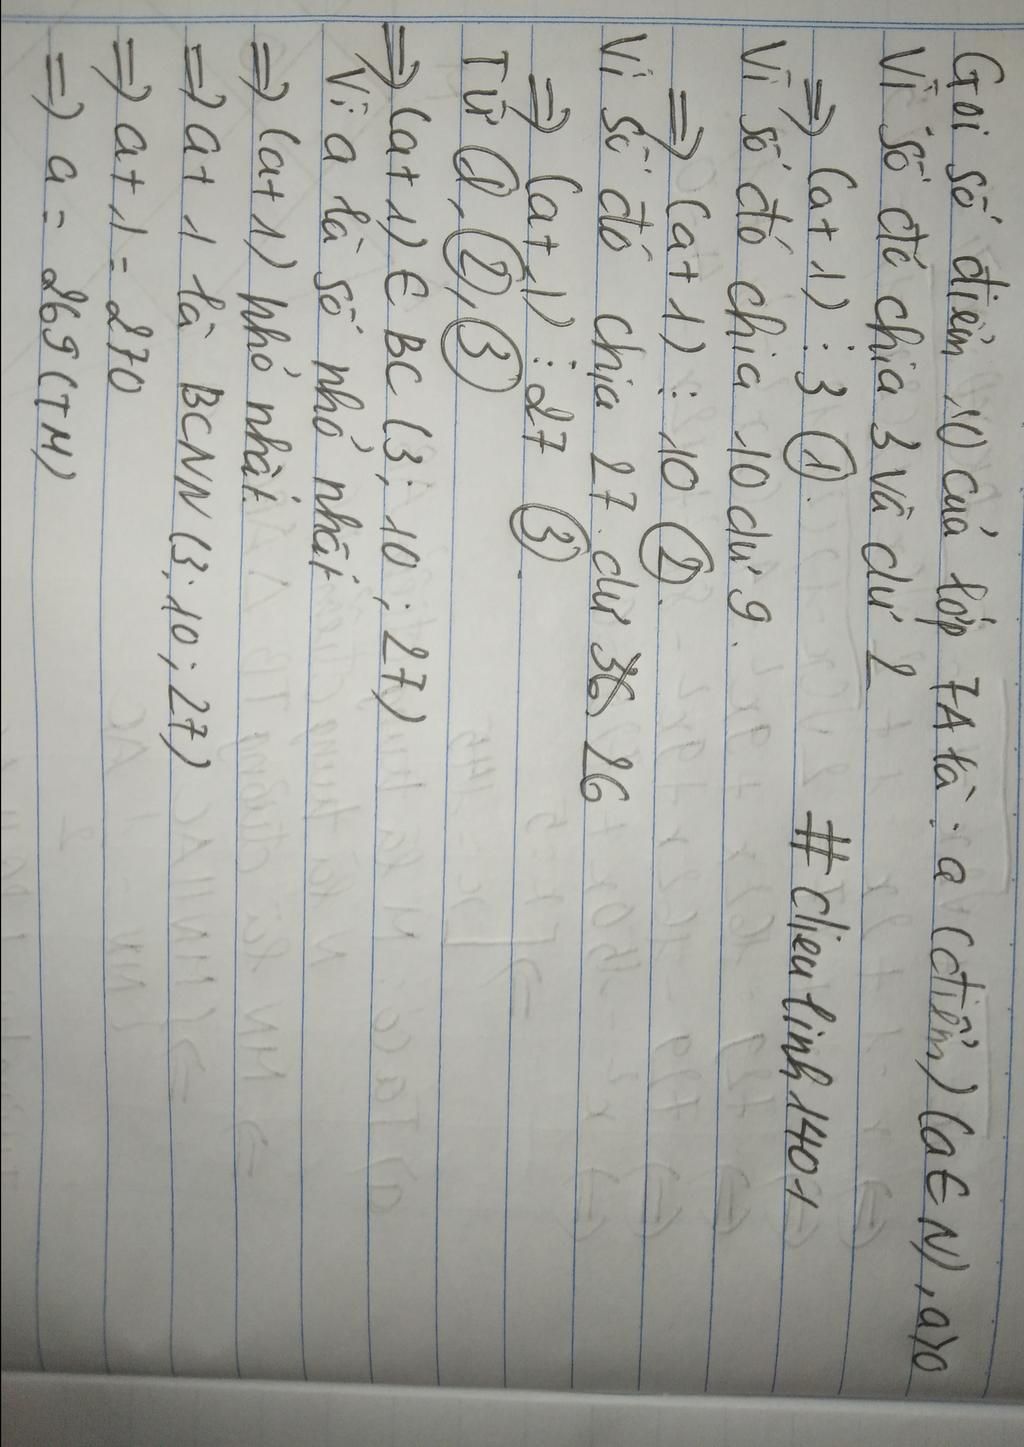 Gọi số điểm 10 của lớp 7A là: a (điểm) (a∈N), a>0
Vì số đó chia 3 và dư 2
⇒ (a+1) ⋮ 3 ①.
#dieulinh1401
Vì số đó chia 10 dư 9.
⇒ (a+1) ⋮ 10 ②.
Vì số đó chia 27 dư 26
⇒ (a+1) ⋮ 27 ③.
Từ ①, ②, ③
⇒ (a+1) ∈ BC (3; 10; 27)
Vì a là số nhỏ nhất
⇒ (a+1) nhỏ nhất
⇒ a+1 là BCNN (3; 10; 27)
⇒ a+1 = 270
⇒ a = 269 (TM)